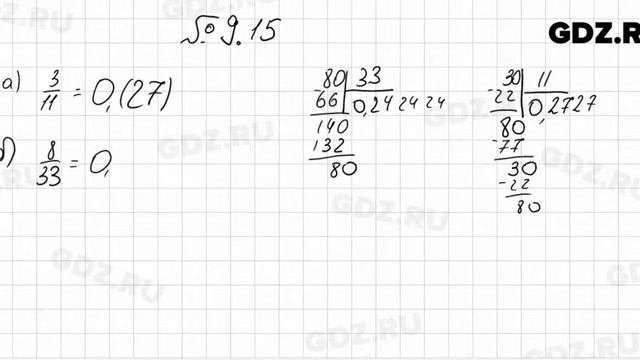 № 9.15
GDZ.RU
а) 3/11 = 0,(27)
б) 8/33 = 0,
-80 | 33
66 | 0,24 24 24
140
132
80
-30 | 11
-22 | 0,2727
80
-77
30
-22
80
GDZ.RU
GDZ.RU
GDZ.RU
GDZ.RU
GDZ.RU
GDZ.RU